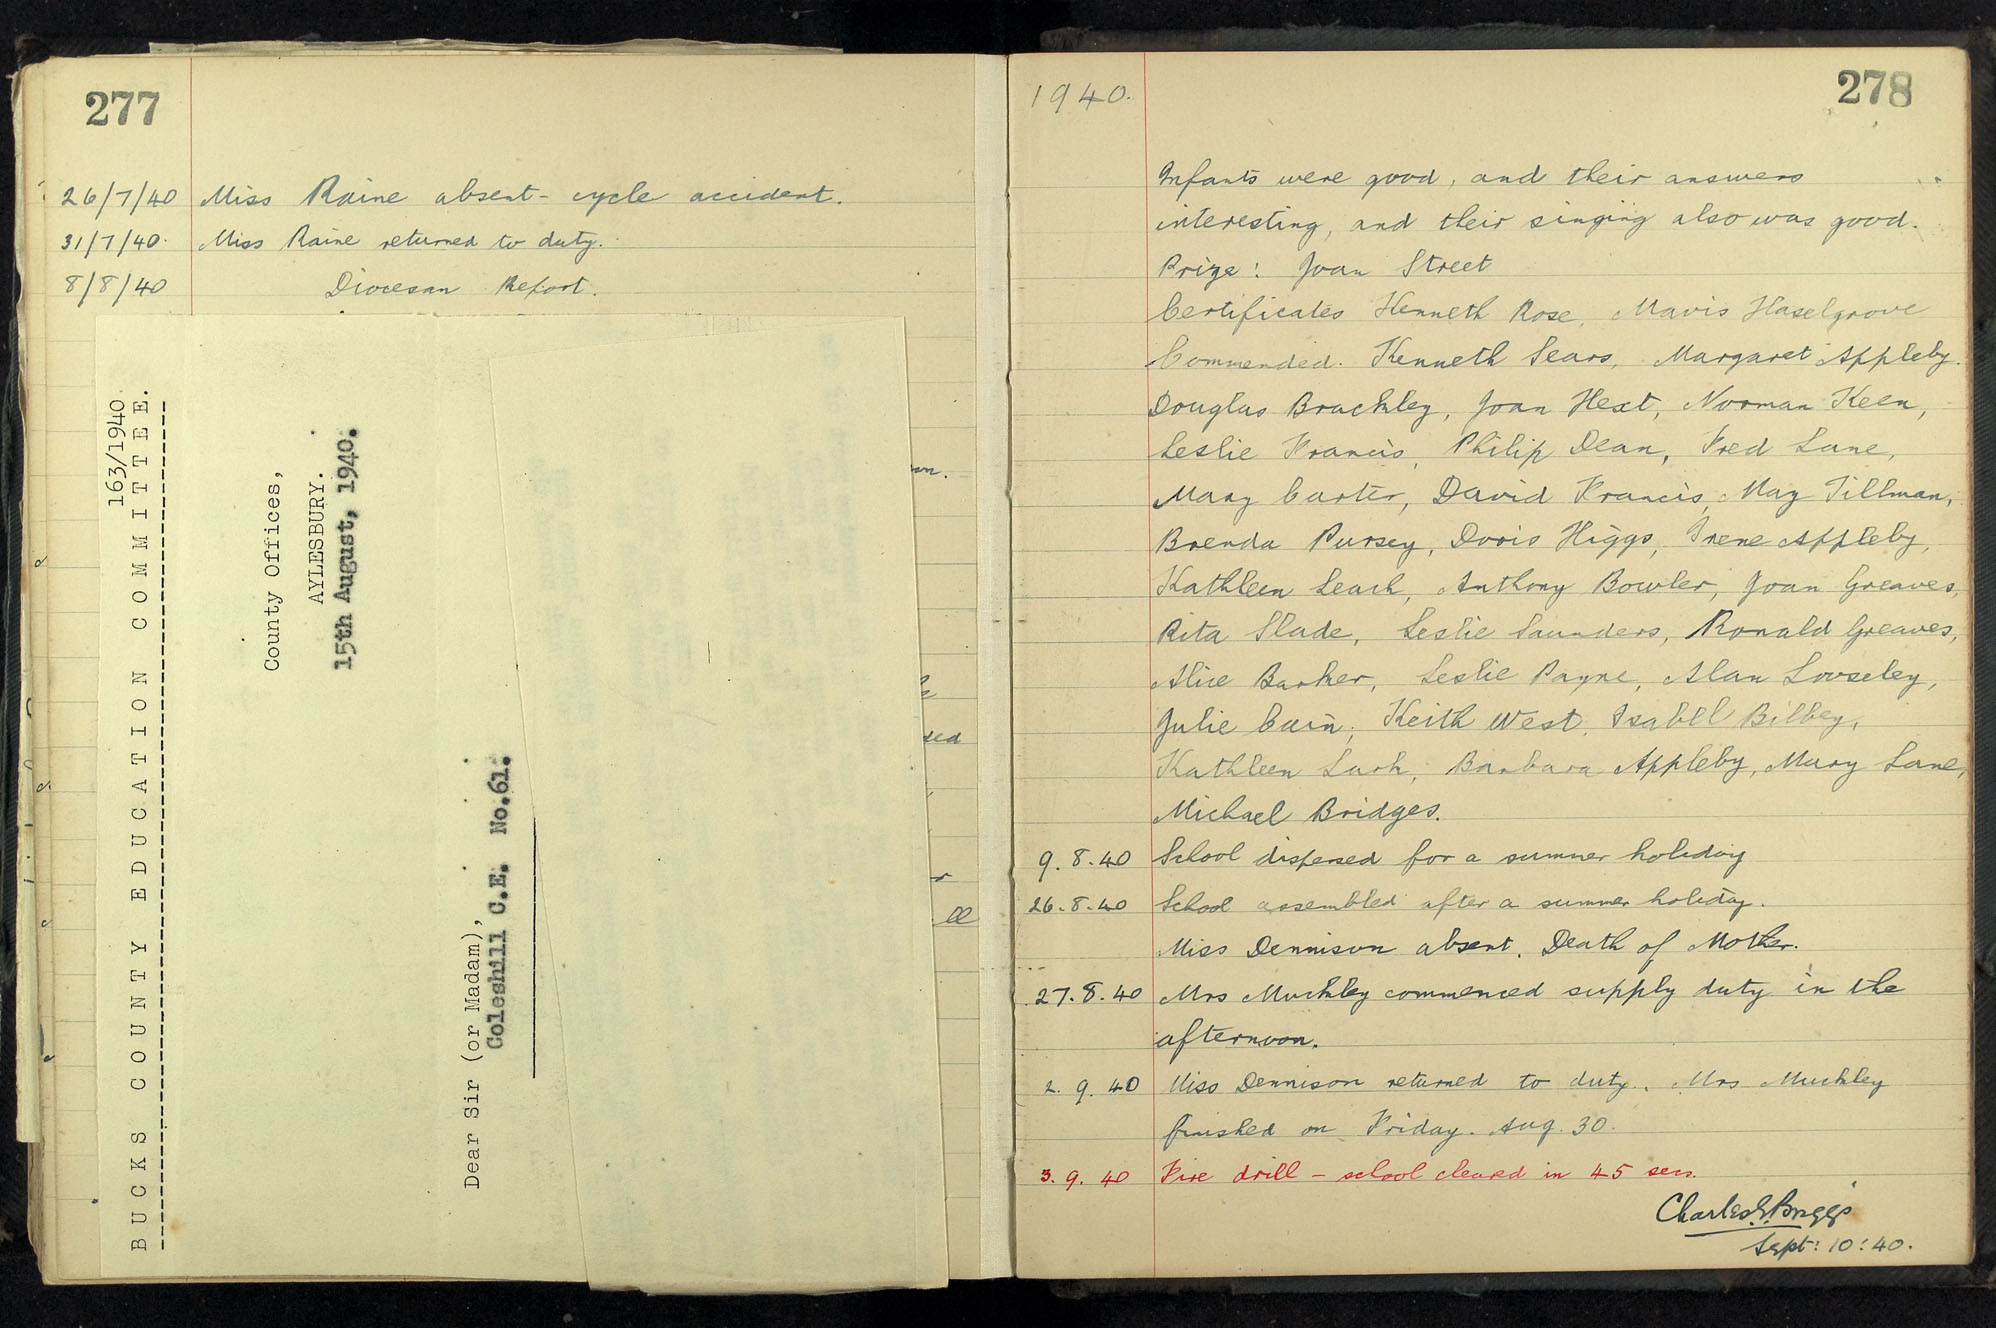 277
26/7/40 Miss Raine absent - cycle accident.
31/7/40. Miss Raine returned to duty.
8/8/40 Diocesan Report.
163/1940
BUCKS COUNTY EDUCATION COMMITTEE.
County Offices,
AYLESBURY.
15th August, 1940.
Dear Sir (or Madam),
Coleshill C.E. No.61.
1940.
278
Infants were good, and their answers
interesting, and their singing also was good.
Prize: Joan Street
Certificates Kenneth Rose, Mavis Haselgrove
Commended. Kenneth Sears, Margaret Appleby.
Douglas Brackley, Joan Hext, Norman Keen,
Leslie Francis, Philip Dean, Fred Lane,
Mary Carter, David Francis, May Tillman,
Brenda Pursey, Doris Higgs, Irene Appleby,
Kathleen Leach, Anthony Bowler, Joan Greaves,
Rita Slade, Leslie Saunders, Ronald Greaves,
Alice Barker, Leslie Payne, Alan Looseley,
Julie Cain, Keith West, Isabel Bilbey,
Kathleen Lark, Barbara Appleby, Mary Lane,
Michael Bridges.
9.8.40 School dispersed for a summer holiday
26.8.40 School assembled after a summer holiday.
Miss Dennison absent. Death of Mother.
27.8.40 Mrs Muckley commenced supply duty in the
afternoon.
2.9.40 Miss Dennison returned to duty. Mrs Muckley
finished on Friday. Aug. 30.
3.9.40 Fire drill - school cleared in 45 secs.
Charles E. Briggs
Sept: 10:40.